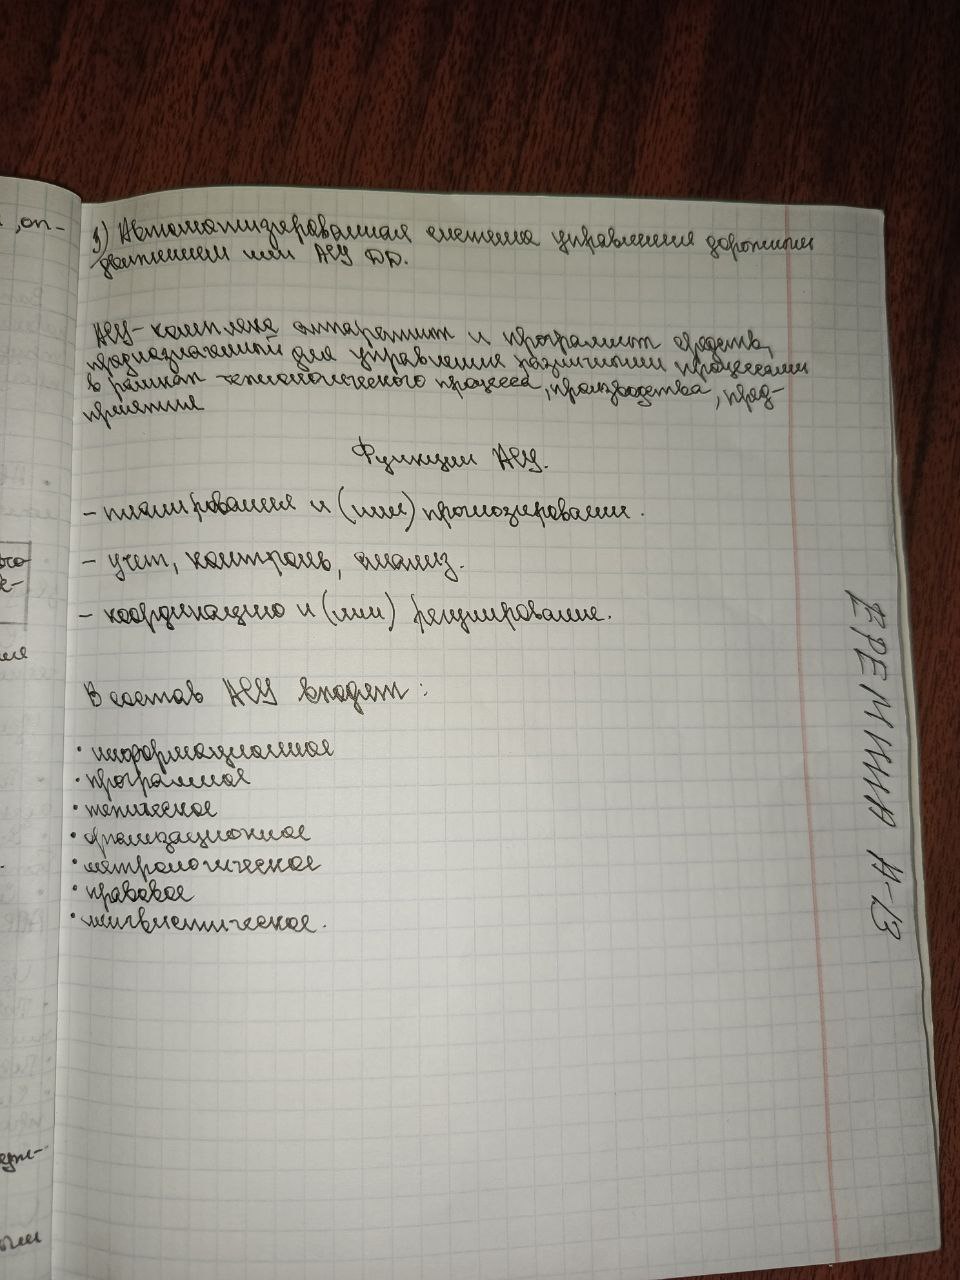 3) Автоматизированная система управления дорожным
движением или АСУ ДД.
АСУ - комплекс аппаратных и программных средств,
предназначенный для управления различными процессами
в рамках технологического процесса, производства, пред-
приятия
Функции АСУ.
- планирования и (или) прогнозирование.
- учет, контроль, анализ.
- координацию и (или) регулирование.
В состав АСУ входят:
• информационное
• програмное
• техническое
• организационное
• метрологическое
• правовое
• лингвистическое.
ЕРЕМИНА Н-13
, оп-